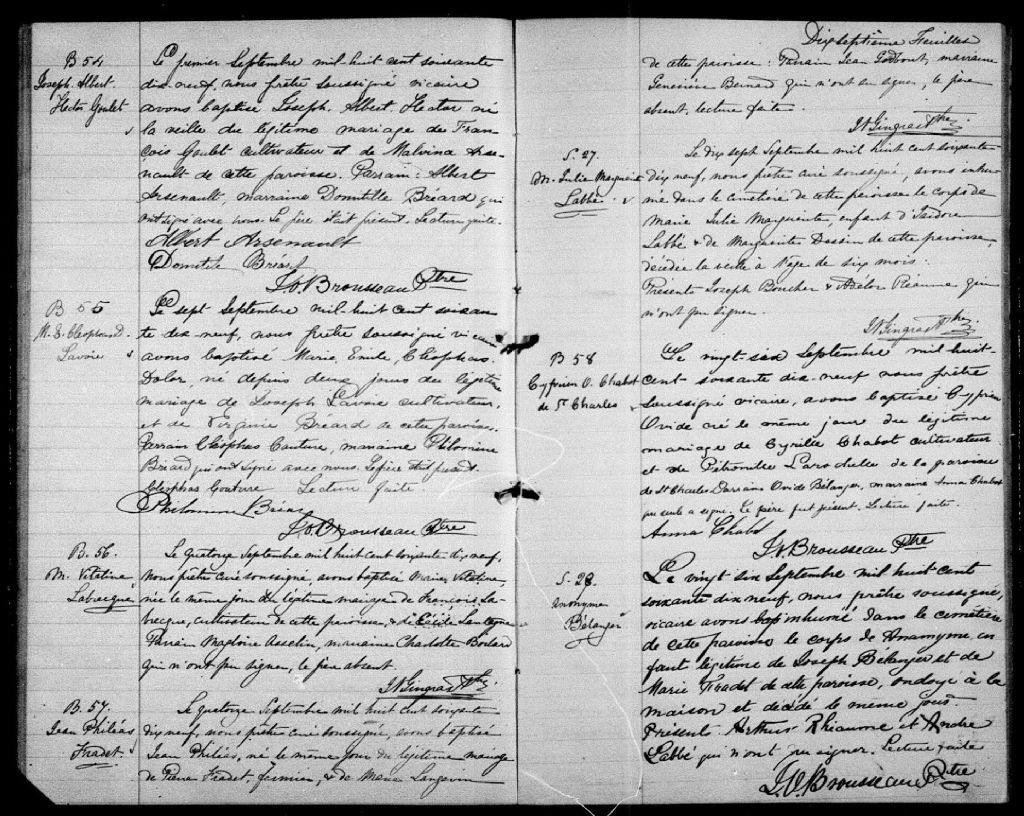 B 54
Joseph Albert
Hector Goulet
Le premier Septembre mil huit cent soixante
dix neuf, nous prêtre soussigné vicaire
avons baptisé Joseph Albert Hector né
la veille du légitime mariage de Fran
çois Goulet cultivateur et de Malvina Arse
nault de cette paroisse. Parrain: Albert
Arsenault, marraine Domitille Bréard qui
ont signé avec nous. Le père était présent. Lecture faite.
Albert Arsenault
Domitile Bréard
J.O. Brousseau Ptre
B 55
M. E. Cleophas D.
Lavoie
Le sept Septembre mil huit cent soixan
te dix neuf, nous prêtre soussigné vicaire
avons baptisé Marie, Emile, Cléophas,
Dolor, né depuis deux jours du légitime
mariage de Joseph Lavoie cultivateur,
et de Virginie Bréard de cette paroisse.
Parrain Cléophas Couture, marraine Philomène
Bréard qui ont signé avec nous. Le père était présent.
Cleophas Couture Lecture faite.
Philomene Bréard
J.O. Brousseau Ptre
B. 56.
M. Vitaline
Labrecque
Le quatorze Septembre mil huit cent soixante dix neuf,
nous prêtre curé soussigné, avons baptisé Marie Vitaline,
née le même jour du légitime mariage de François La-
brecque, cultivateur de cette paroisse, & de Cécile
Parrain Magloire Asselin, marraine Charlotte
qui n'ont pu signer, le père absent.
J N Gingras Ptre
B. 57.
Jean Philéas
Fradet.
Le quatorze Septembre mil huit cent soixante
dix neuf, nous prêtre curé soussigné, avons baptisé
Jean Philéas, né le même jour du légitime mariage
de Pierre Fradet, fermier, & de Marie Langevin
Dix septième Feuillet
de cette paroisse: Parrain Jean Godbout, marraine
Geneviève Bernard qui n'ont su signer, le père
absent. Lecture faite.
J N Gingras Ptre.
S. 27.
M. Julie Marguerite
Labbé.
Le dix sept Septembre mil huit cent soixante
dix neuf, nous prêtre curé soussigné, avons inhu
mé dans le cimetière de cette paroisse le corps de
Marie Julie Marguerite, enfant d'Isidore
Labbé & de Marguerite de cette paroisse,
décédée la veille à l'âge de six mois.
Présents Joseph Boucher & qui
n'ont pu signer.
J N Gingras Ptre
B 58
Cyprien O. Chabot
de St Charles
Le vingt-six Septembre mil huit-
cent-soixante dix-neuf nous prêtre
soussigné vicaire, avons baptisé Cyprien
Ovide né le même jour du légitime
mariage de Cyrille Chabot cultivateur
et de Pétronille Larochelle de la paroisse
de St Charles Parrain Ovide Bélanger, marraine Anna Chabot
qui seule a signé. Le père fut présent. Lecture faite.
Anna Chabot
J.O. Brousseau Ptre
S. 28
Anonyme
Bélanger
Le vingt six Septembre mil huit cent
soixante dix neuf, nous, prêtre soussigné,
vicaire avons inhumé dans le cimetière
de cette paroisse le corps de Anonyme, en
fant légitime de Joseph Bélanger et de
Marie Fradet de cette paroisse, ondoyé à la
maison et décédé le même jour.
Présents Arthur Rhéaume et André
Labbé qui n'ont pu signer. Lecture faite
J.O. Brousseau Ptre